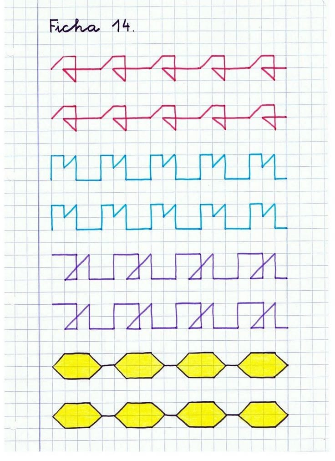 Ficha 14.